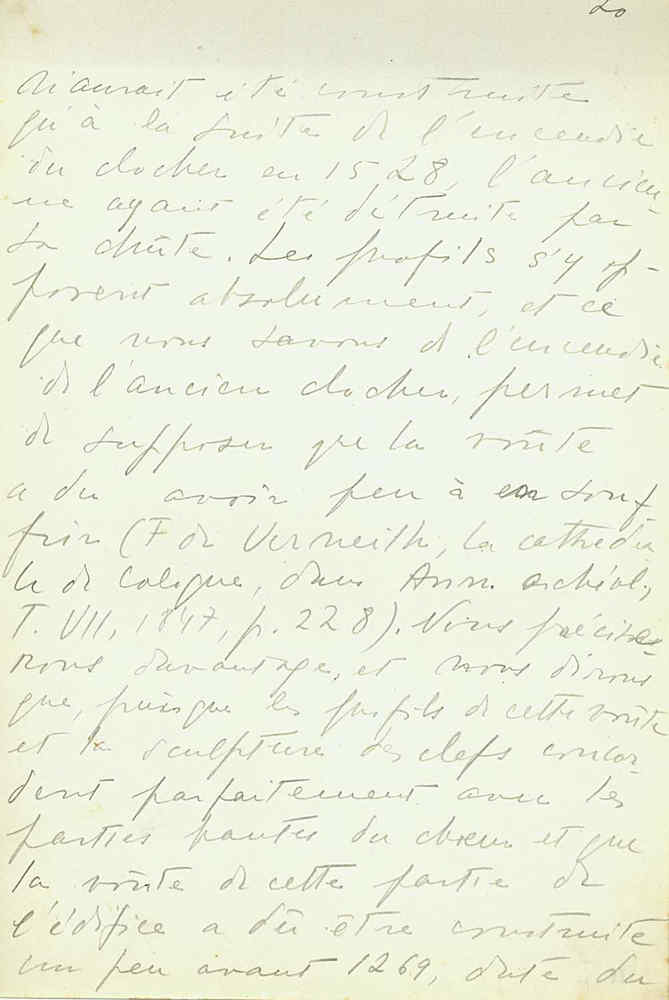 20
n'aurait été construite
qu'à la suite de l'incendie
du clocher en 1528, l'ancien-
ne ayant été détruite par
sa chûte. Les profils s'y op-
posent absolument, et ce
que nous savons de l'incendie
de l'ancien clocher, permet
de supposer que la voûte
a du avoir peu à en souf
frir (F de Verneilh, la cathédra
le de Cologne, dans Ann. archéol.,
T. VII, 1847, p. 228). Nous précise-
rons davantage, et nous dirons
que, puisque les profils de cette voûte
et la sculpture des clefs concor-
dent parfaitement avec les
parties hautes du chœur et que
la voûte de cette partie de
l'édifice a dû être construite
un peu avant 1269, date du